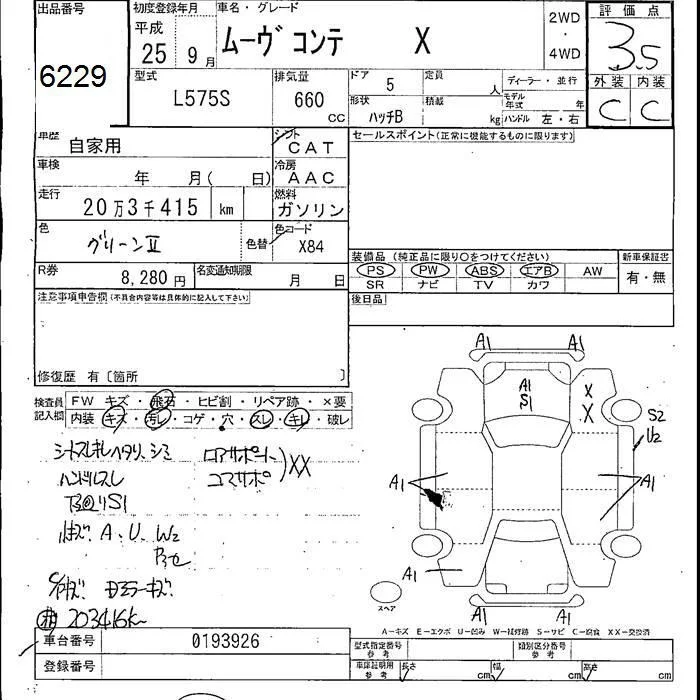 出品番号
6229
初度登録年月
平成
25 9月
車名・グレード
ムーヴ コンテ X
2WD
・
4WD
評価点
3.5
外装 内装
C C
型式
L575S
排気量
660 cc
ドア 5
形状 ハッチB
定員 人
積載 kg
ディーラー・並行
モデル年式 年
ハンドル 左・右
車歴
自家用
シフト
CAT
セールスポイント(正常に機能するものに限ります)
車検
年 月( 日)
冷房
AAC
走行
20万3千415 km
燃料
ガソリン
色
グリーンⅡ
色替
色コード
X84
装備品 (純正品に限り○をつけてください)
PS PW ABS エアB AW
SR ナビ TV カワ
新車保証書
有・無
R券
8,280円
名変通知期限
月 日
後日品
注意事項申告欄(不具合内容等は具体的に記入して下さい)
修復歴 有〔箇所 〕
検査員記入欄
FW キズ・飛石・ヒビ割・リペア跡・×要
内装 キズ・汚レ・コゲ・穴・スレ・キレ・破レ
シートスレキレヘタリ シミ
ハンドルスレ
下回りS1
コアサポート
コアサポ
XX
A・U・W2
203416K
A1 A1
A1
S1
X
X
S2
U2
A1
A1
A1
A1 A1
スペア
A-キズ E-エクボ U-凹み W-補修跡 S-サビ C-腐食 XX-交換済
車台番号
0193926
型式指定番号
参考
類別区分番号
参考
登録番号
車庫証明用
参考
長さ cm
幅 cm
高さ cm